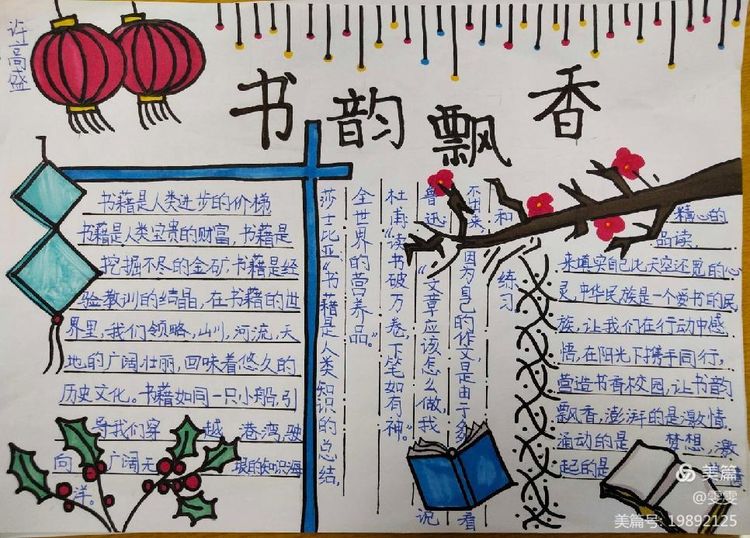 许高盛
书韵飘香
书藉是人类进步的价梯
书藉是人类宝贵的财富,书藉是
挖掘不尽的金矿,书藉是经
验教训的结晶,在书藉的世
界里,我们领略,山川,河流,天
地的广阔壮丽,回味着悠久的
历史文化。书藉如同一只小船,引
导我们穿越港湾,驶
向广阔无垠的知识海
洋。
莎士比亚"书藉是人类知识的总结,
全世界的营养品。"
杜甫"读书破万卷下笔如有神。"
鲁迅:"文章应该怎么做,我说
不出来,因为自己的作文是由于多看
和练习
精心的
品读,
来填实自己比天空还宽的心
灵,中华民族是一个爱书的民
族,让我们在行动中感
悟,在阳光下携手同行,
营造书香校园,让书韵
飘香,澎湃的是激情
涌动的是梦想,激
起的是
美篇
@雯雯
美篇号: 19892125